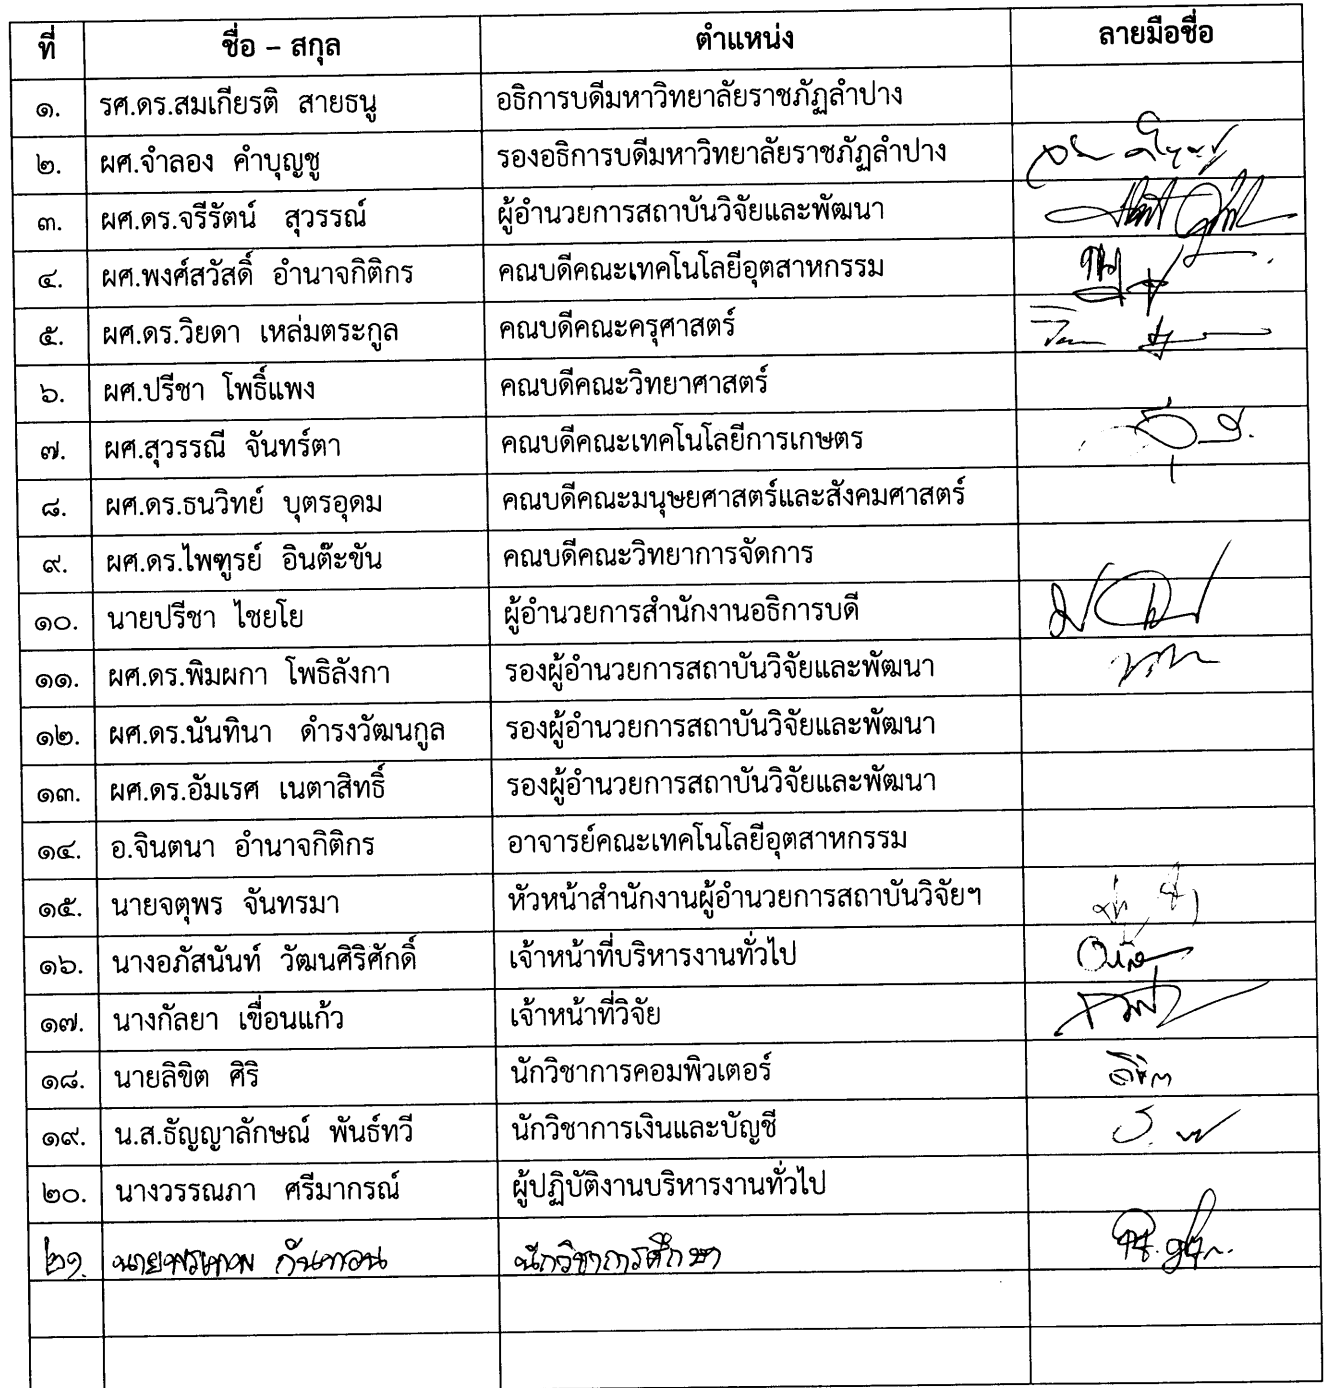 ที่ ชื่อ – สกุล ตำแหน่ง ลายมือชื่อ
๑. รศ.ดร.สมเกียรติ สายธนู อธิการบดีมหาวิทยาลัยราชภัฏลำปาง
๒. ผศ.จำลอง คำบุญชู รองอธิการบดีมหาวิทยาลัยราชภัฏลำปาง
๓. ผศ.ดร.จรีรัตน์ สุวรรณ์ ผู้อำนวยการสถาบันวิจัยและพัฒนา
๔. ผศ.พงศ์สวัสดิ์ อำนาจกิติกร คณบดีคณะเทคโนโลยีอุตสาหกรรม
๕. ผศ.ดร.วิยดา เหล่มตระกูล คณบดีคณะครุศาสตร์
๖. ผศ.ปรีชา โพธิ์แพง คณบดีคณะวิทยาศาสตร์
๗. ผศ.สุวรรณี จันทร์ตา คณบดีคณะเทคโนโลยีการเกษตร
๘. ผศ.ดร.ธนวิทย์ บุตรอุดม คณบดีคณะมนุษยศาสตร์และสังคมศาสตร์
๙. ผศ.ดร.ไพฑูรย์ อินต๊ะขัน คณบดีคณะวิทยาการจัดการ
๑๐. นายปรีชา ไชยโย ผู้อำนวยการสำนักงานอธิการบดี
๑๑. ผศ.ดร.พิมผกา โพธิลังกา รองผู้อำนวยการสถาบันวิจัยและพัฒนา
๑๒. ผศ.ดร.นันทินา ดำรงวัฒนกูล รองผู้อำนวยการสถาบันวิจัยและพัฒนา
๑๓. ผศ.ดร.อัมเรศ เนตาสิทธิ์ รองผู้อำนวยการสถาบันวิจัยและพัฒนา
๑๔. อ.จินตนา อำนาจกิติกร อาจารย์คณะเทคโนโลยีอุตสาหกรรม
๑๕. นายจตุพร จันทรมา หัวหน้าสำนักงานผู้อำนวยการสถาบันวิจัยฯ
๑๖. นางอภัสนันท์ วัฒนศิริศักดิ์ เจ้าหน้าที่บริหารงานทั่วไป
๑๗. นางกัลยา เขื่อนแก้ว เจ้าหน้าที่วิจัย
๑๘. นายลิขิต ศิริ นักวิชาการคอมพิวเตอร์ ลิขิต
๑๙. น.ส.ธัญญาลักษณ์ พันธ์ทวี นักวิชาการเงินและบัญชี
๒๐. นางวรรณภา ศรีมากรณ์ ผู้ปฏิบัติงานบริหารงานทั่วไป
๒๑. นายพรเทพ กันทอน นักวิชาการศึกษา